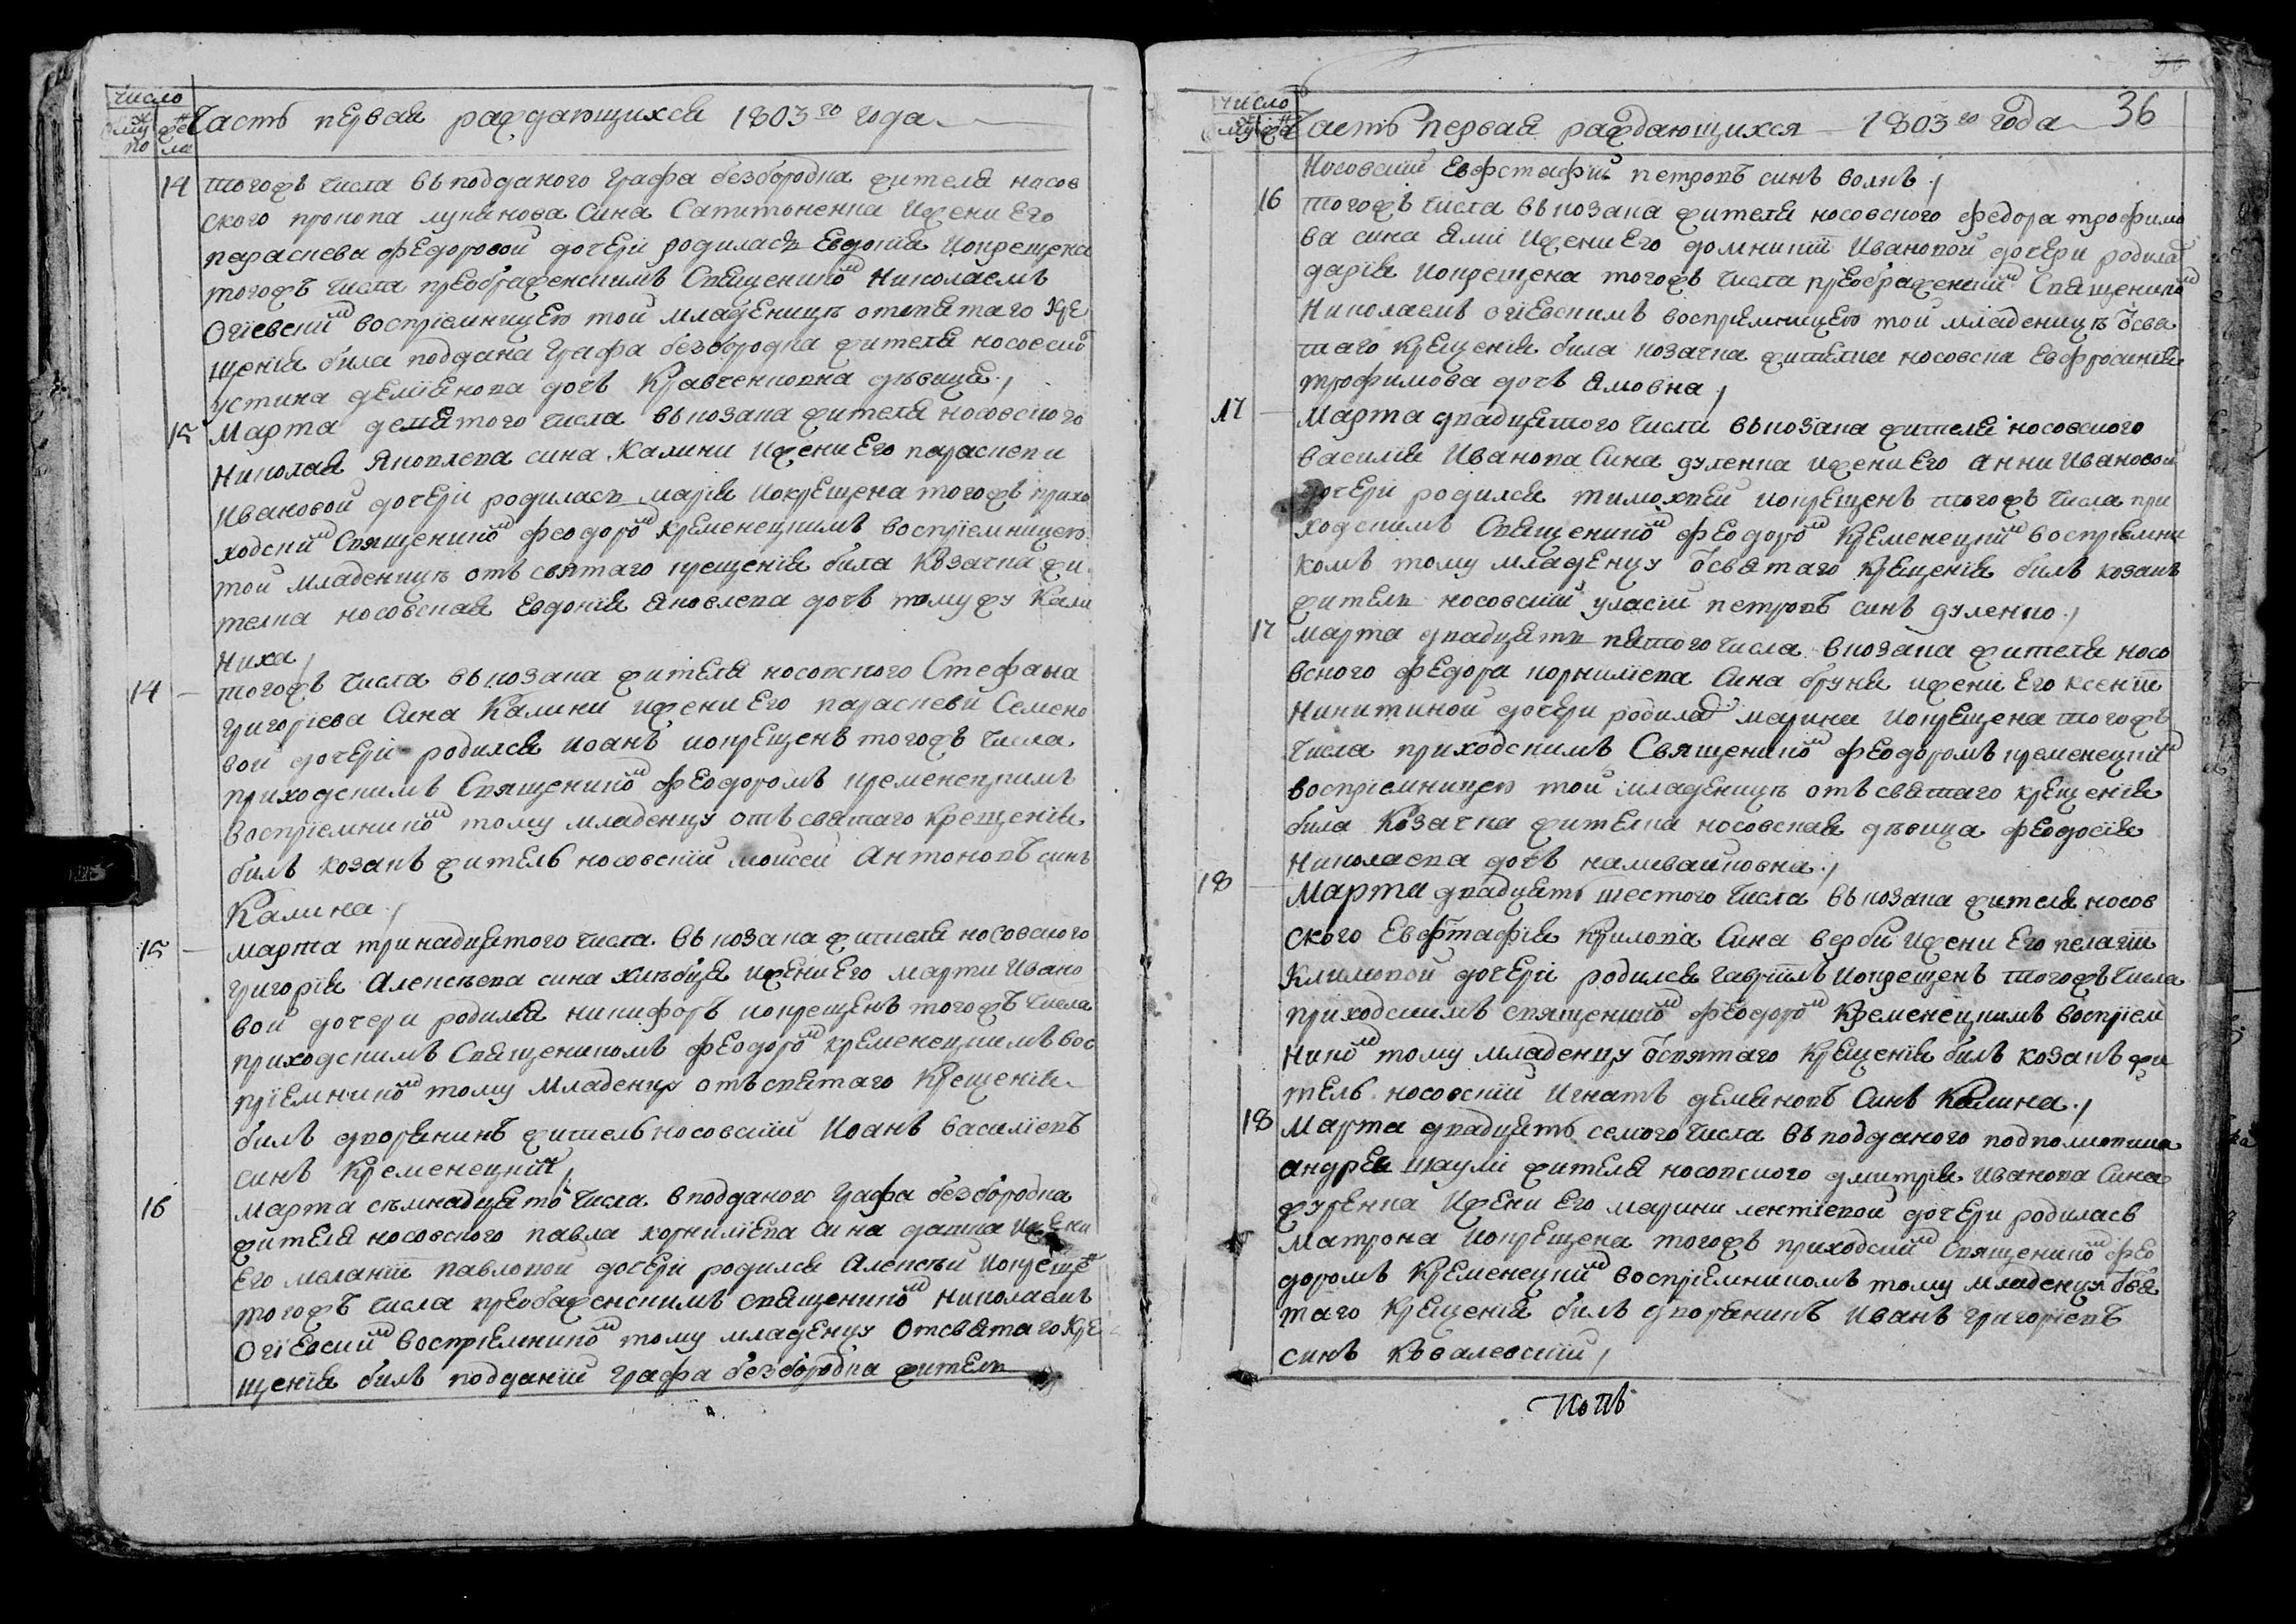 число
муж
по
жен
ла
Часть первая раждающихся 1803го года
14 тогожъ числа въ подданого Графа безбородка жителя носов
ского прокопа лукянова сина Сапитоненка ижени Его
параскеви федоровой дочери родилась Евдокія икрещена
тогожъ числа преображенскимъ Священиком Николаемъ
Огіевским воспріемницею той младеницѣ отсвятаго Кре
щенія била поддана Графа безбородка жителя носовско
устина деміянова дочь Кравченковна дѣвица
15 Марта девятого числа въ козака жителя носовского
Николая Яковлева сина Калини ижени Его параскеви
Ивановой дочери родилась марія икрещена тогожъ прихо
ходским Священиком феодором Кременецкимъ воспріемницею
той младеницѣ отъ святаго крещенія била Козачка жи
телка носовская Евдокія Яковлева дочь томуху Кали
ниха
14 тогожъ числа въ козака жителя носовского Стефана
Григоріева Сина Калини ижени Его параскеви Семено
вой дочери родился иоанъ икрещенъ тогожъ числа
приходскимъ Священиком феодоромъ кременецкимъ
воспріемником тому младенцу отъ святаго крещенія
билъ козакъ житель носовскій моисей Антоновъ синъ
Калина
15 марта тринадцятого числа въ козака жителя носовского
григорія Алексѣева сина хлѣбця ижени Его марти Ивано
вой дочери родился никифоръ икрещенъ тогожъ числа
приходскимъ Священикомъ феодором кременецкимъ вос
пріемником тому Младенцу отъ святаго Крещенія
билъ дворянинъ житель носовскій Иоанъ василіевъ
синъ Кременецкій
16 Марта сѣмнадцято числа в подданого Графа безбородка
жителя носовского павла корниліева сина дашка ижени
Его меланіи павловой дочери родился Алексѣй икреще
тогожъ числа преображенскимъ священиком Николаемъ
Огіевским воспріемником тому младенцу Отсвятаго Кре
щенія билъ подданій Графа безбородка житель
число
муж
Часть первая раждающихся 1803го года 36
Носовскій Евфстафій петровъ синъ волкъ
16 тогожъ числа въ козака жителя носовского федора трофимо
ва сина Ями ижени Его домникіи Ивановой дочери родилас
дарія икрещена тогожъ числа преображенским Священиком
Николаемъ огіевскимъ воспріемницею той младеницѣ освя
таго Крещенія била козачка жителка носовска Евфросинія
трофимова дочь Ямовна
17 Марта двадцятого числа въ козака жителя носовского
василія Иванова Сина дуленка ижени Его анни Ивановой
дочери родился тимохвей икрещенъ тогожъ числа при
ходскимъ Священиком феодором Кременецким воспріемни
комъ тому младенцу освятаго крещенія билъ козакъ
житель носовскій уласій петровъ синъ дуленко
17 марта двадцять пятого числа в козака жителя носо
вского федора корниліева Сина бруня ижени Его ксеніи
Никитиной дочери родилас марина икрещена тогожъ
числа приходскимъ Священиком феодоромъ кременецким
воспріемницею той младеницѣ отъ святаго крещенія
била Козачка жителка носовская дѣвица феодосія
Николаева дочь наливайковна
18 Марта двадцять шестого числа въ козака жителя носов
ского Евфтафія Кирилова Сина верби ижени Его пелагіи
Климовой дочери родился гавріилъ икрещенъ тогожъ числа
приходскимъ священиком феодором Кременецкимъ воспріем
ником тому младенцу освятаго Крещенія билъ козакъ жи
тель носовскій Игнатъ демяновъ Синъ Калина
18 Марта двадцять семого числа въ подданого подполковника
андрея шаулі жителя носовского дмитрія Иванова Сина
фуренка ижени Его марини лентіевой дочери родилась
матрона икрещена тогожъ приходским священиком фео
доромъ Кременецким воспріемникомъ тому младенцу освя
таго Крещенія билъ дворянинъ Иванъ григоріевъ
синъ Ковалевскій